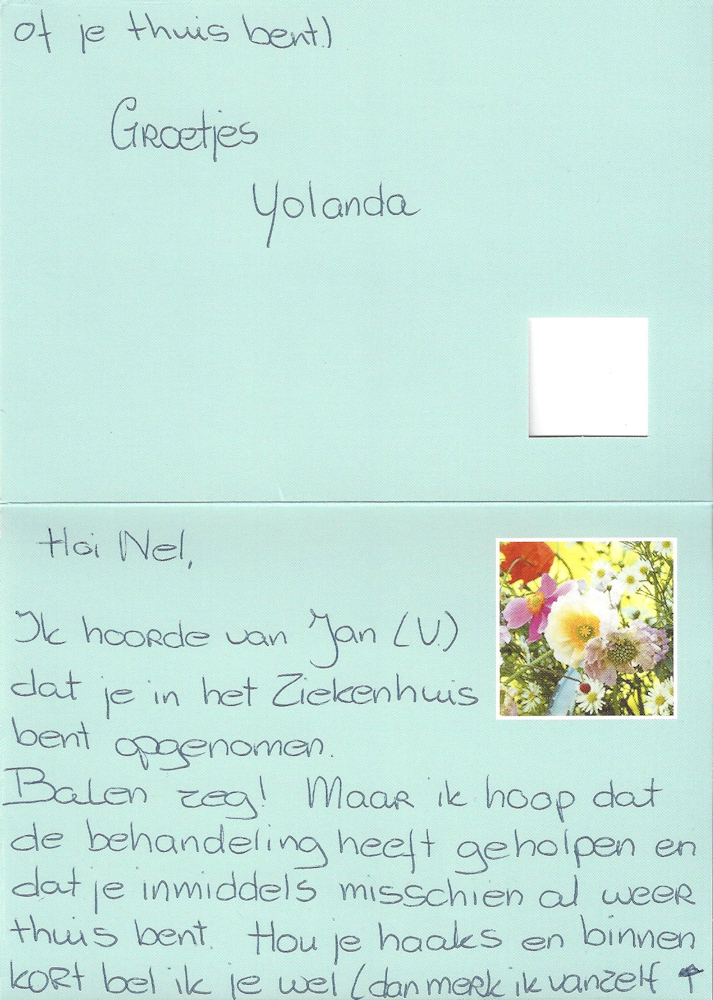 Hoi Nel,
Ik hoorde van Jan (V.)
dat je in het Ziekenhuis
bent opgenomen.
Balen zeg! Maar ik hoop dat
de behandeling heeft geholpen en
dat je inmiddels misschien al weer
thuis bent. Hou je haaks en binnen
kort bel ik je wel (dan merk ik vanzelf ↑
of je thuis bent.)
Groetjes
Yolanda